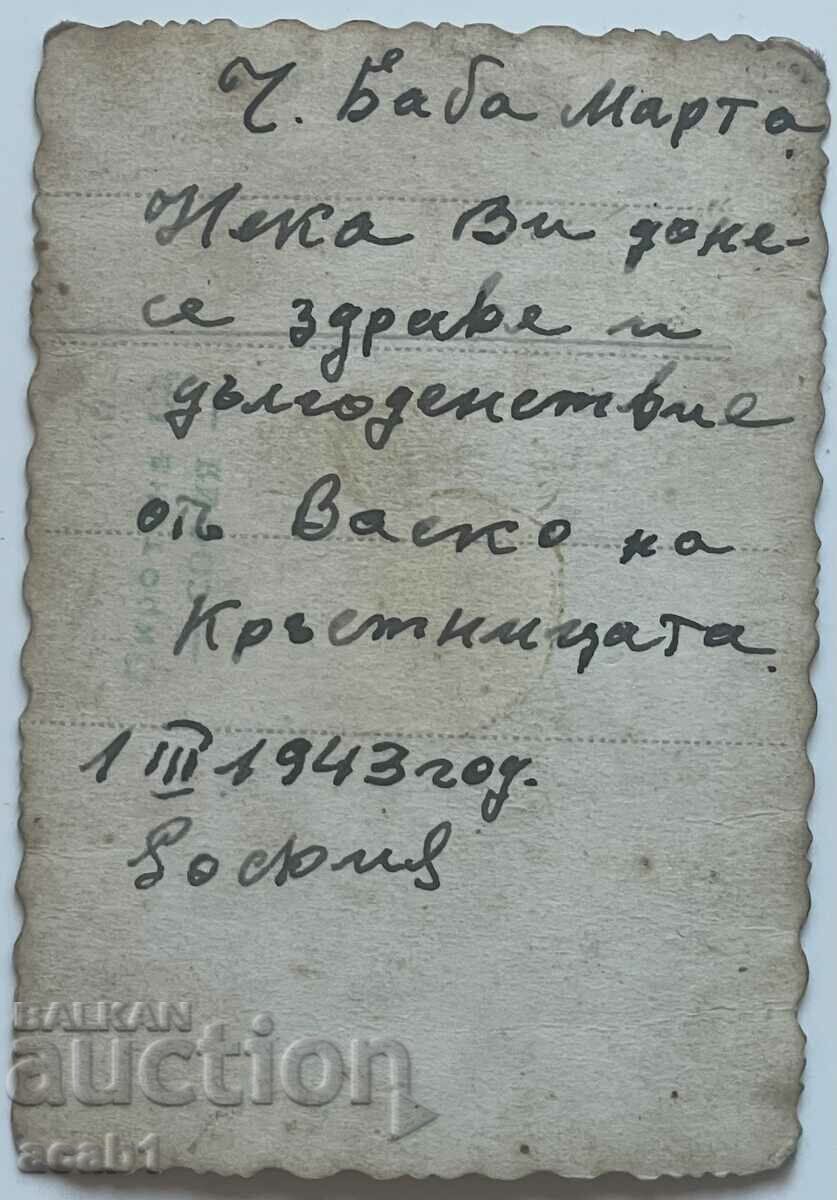 Ч. Баба Марта.
Нека Ви доне-
се здраве и
дългоденствие
отъ Васко на
Кръстницата.
1 III 1943 год.
София
BALKAN
auction
acab1